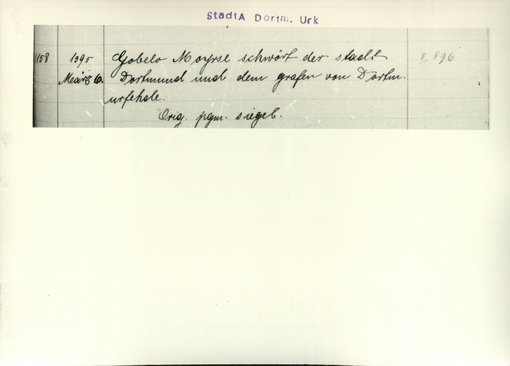 StadtA Dortm. Urk
1158 1395 Gobelo Moyrse schwört der stadt II 896
März 6. Dortmund und dem grafen von Dortm.
urfehde.
Orig. pgm. siegel.